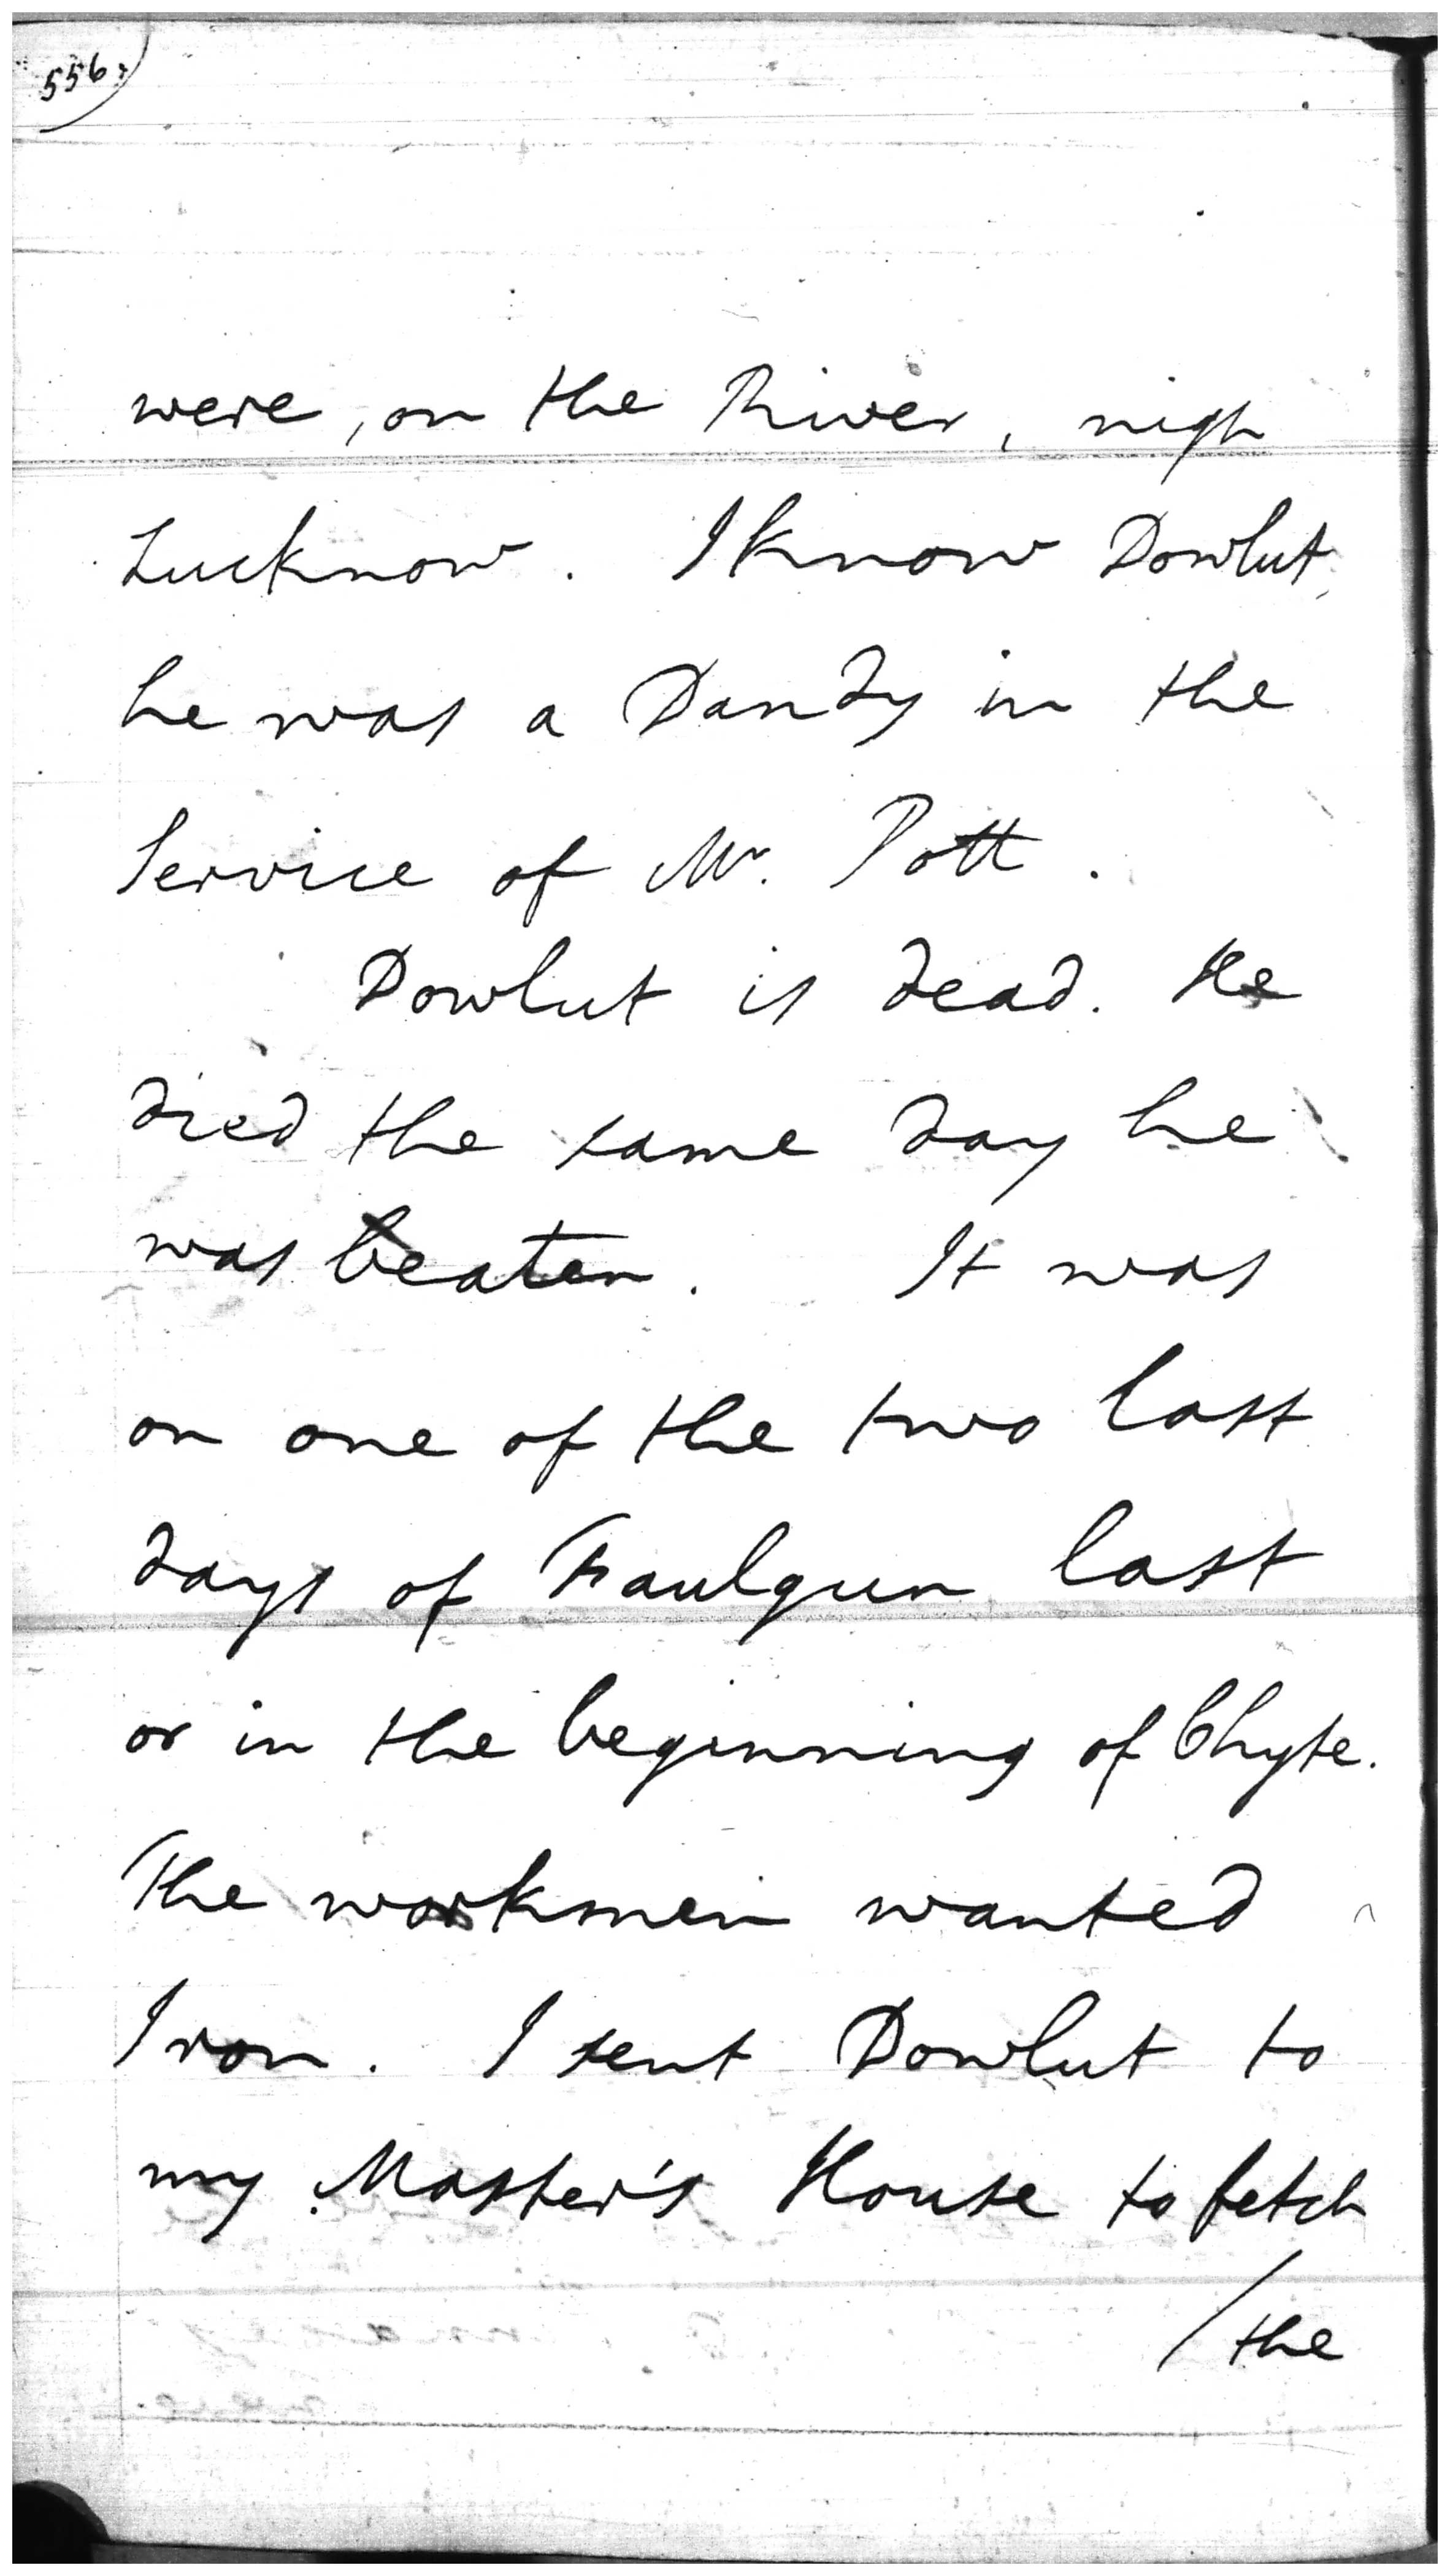 556.
were, on the River, nigh
Lucknow. I know Dowlut,
he was a Dandy in the
Service of Mr. Pott.
Dowlut is dead. He
died the same day he
was beaten. It was
on one of the two last
days of Faulgun last
or in the beginning of Chyte.
The workmen wanted
Iron. I sent Dowlut to
my Master's House to fetch
/the